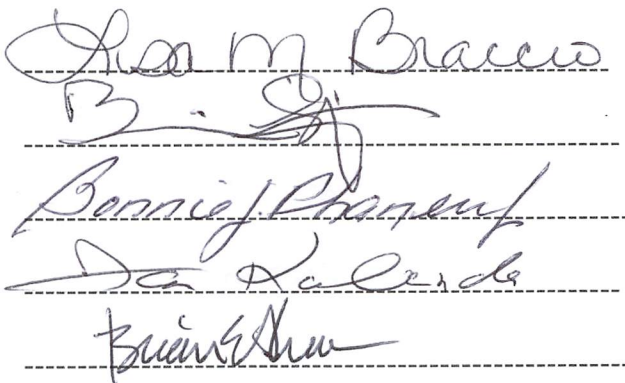 Lisa M Braccio
Bonnie J. Phaneuf
Dan Kalinda
Brian E Shaw